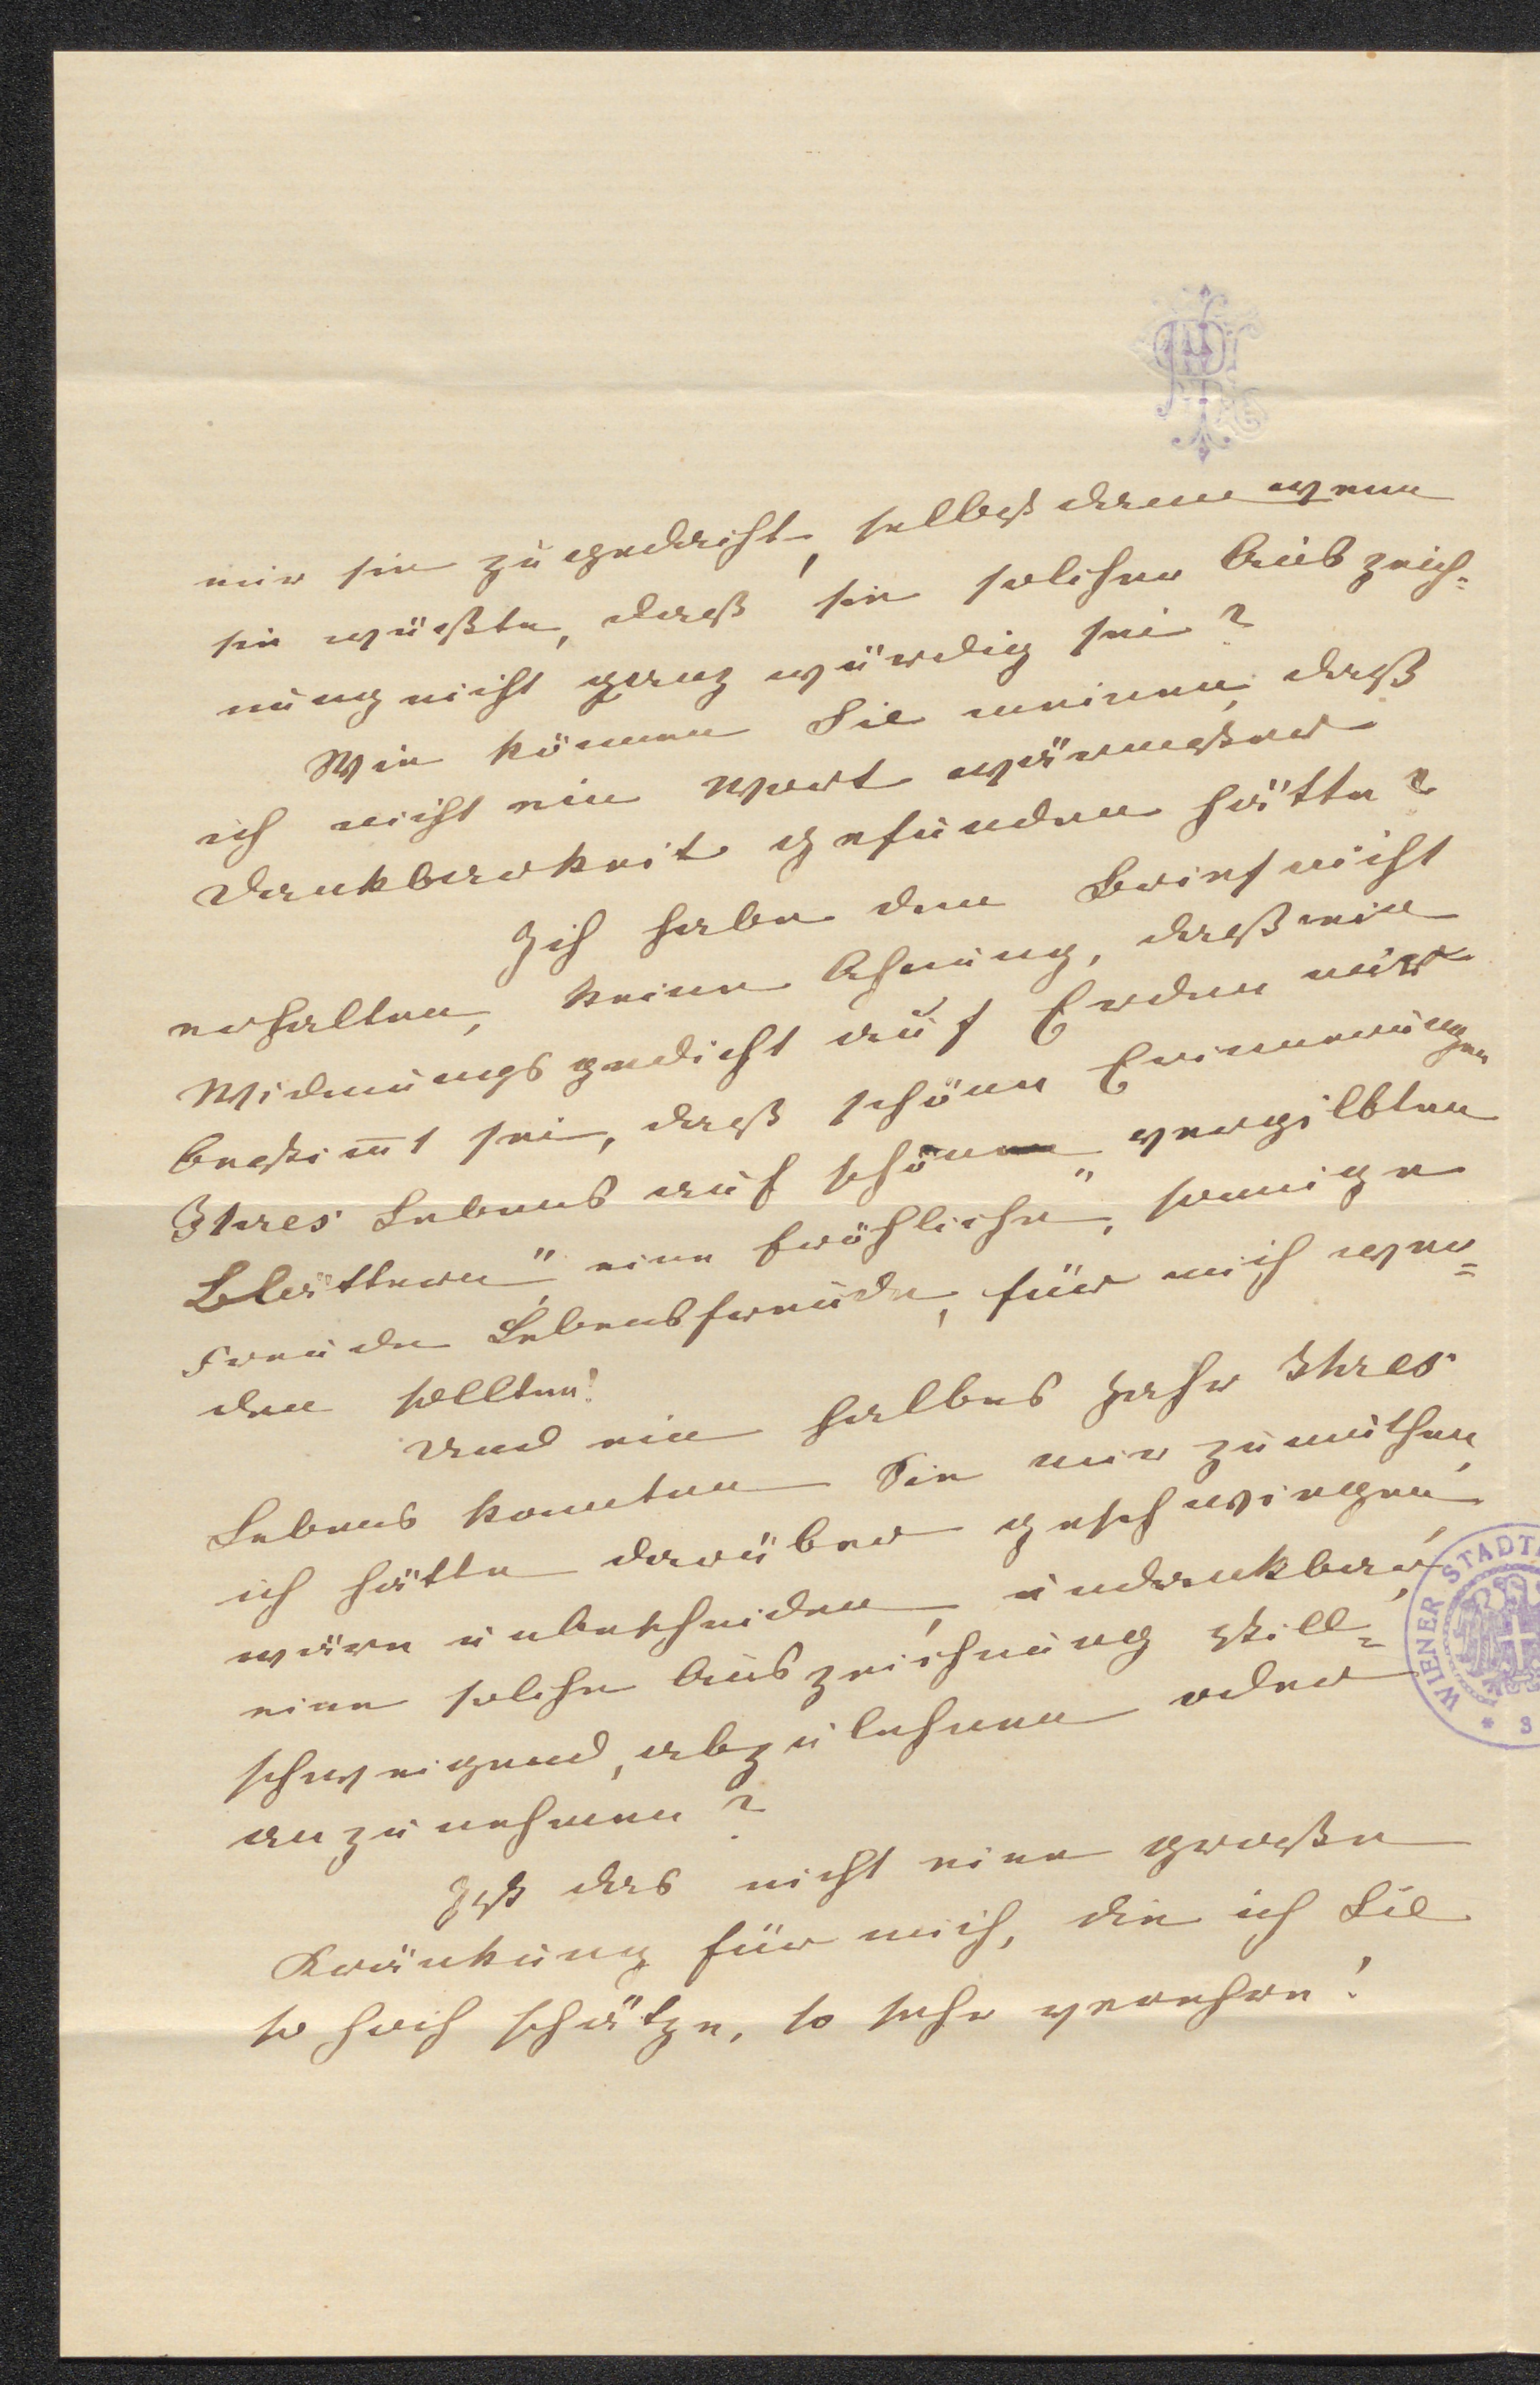 mir sie zugedacht, selbst dann wenn
sie wüßte, daß sie solcher Auszeich=
nung nicht ganz würdig sei?
Wie können Sie meinen, daß
ich nicht ein Wort wärmster
Dankbarkeit gefunden hätte?
Ich habe den Brief nicht
erhalten, keine Ahnung, daß ein
Widmungsgedicht auf Erden mir
bestim̅t sei, daß schöne Erinnerungen
Ihres Lebens auf schönen vergilbten
Blättern", eine fröhliche", sonnige
Freude Lebensfreude, für mich wer=
den sollten!
Und ein halbes Jahr Ihres
Lebens konnten Sie mir zumuthen,
ich hätte darüber geschwiegen,
wäre unbescheiden, undankbar,
eine solche Auszeichnung still=
schweigend, abzulehnen oder
anzunehmen?
Ist das nicht eine große
Kränkung für mich, die ich Sie
so hoch schätze, so sehr verehre!
WIENER STADT